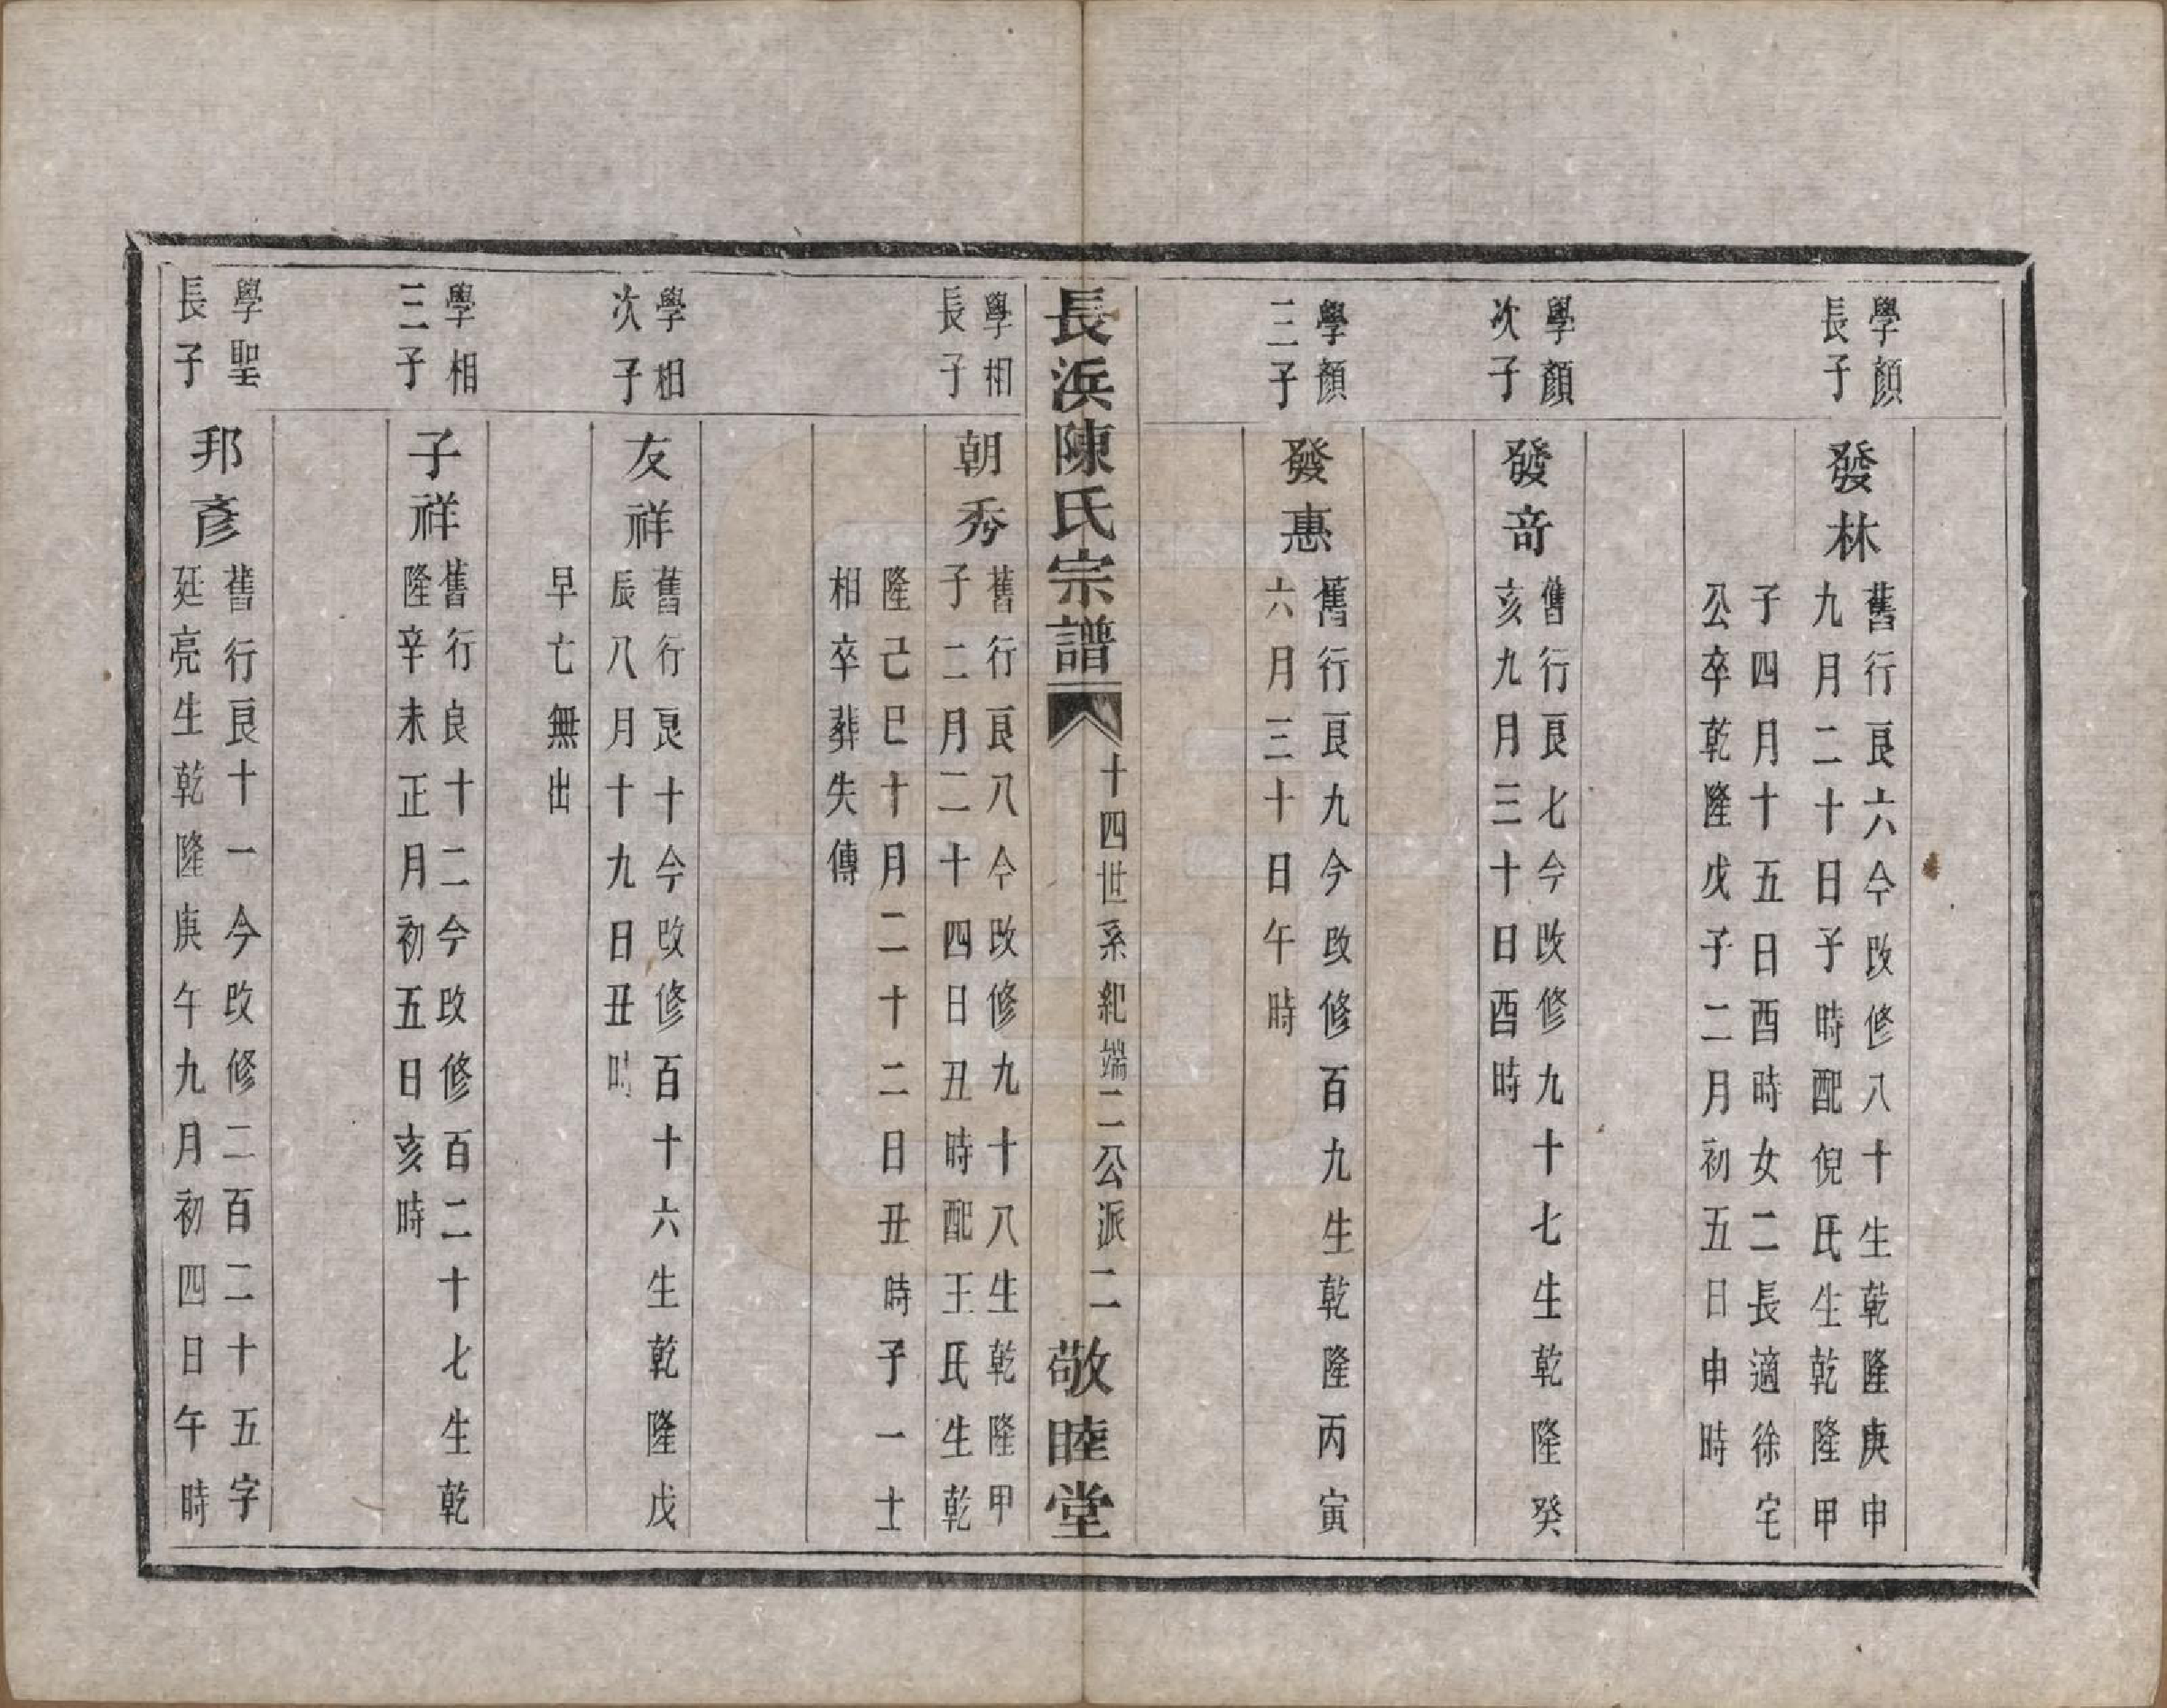 學顏
長子
發林
舊行良六今改修八十生乾隆庚申
九月二十日子時配倪氏生乾隆甲
子四月十五日酉時女二長適徐宅
公卒乾隆戊子二月初五日申時
學顏
次子
發奇
舊行良七今改修九十七生乾隆癸
亥九月三十日酉時
學顏
三子
發惠
舊行良九今改修百九生乾隆丙寅
六月三十日午時
長浜陳氏宗譜
十四世系紀端二公派二
敬睦堂
學相
長子
朝秀
舊行良八今改修九十八生乾隆甲
子二月二十四日丑時配王氏生乾
隆己巳十月二十二日丑時子一士
相卒葬失傳
學相
次子
友祥
舊行良十今改修百十六生乾隆戊
辰八月十九日丑時
早亡無出
學相
三子
子祥
舊行良十二今改修百二十七生乾
隆辛未正月初五日亥時
學聖
長子
邦彥
舊行良十一今改修二百二十五字
廷亮生乾隆庚午九月初四日午時